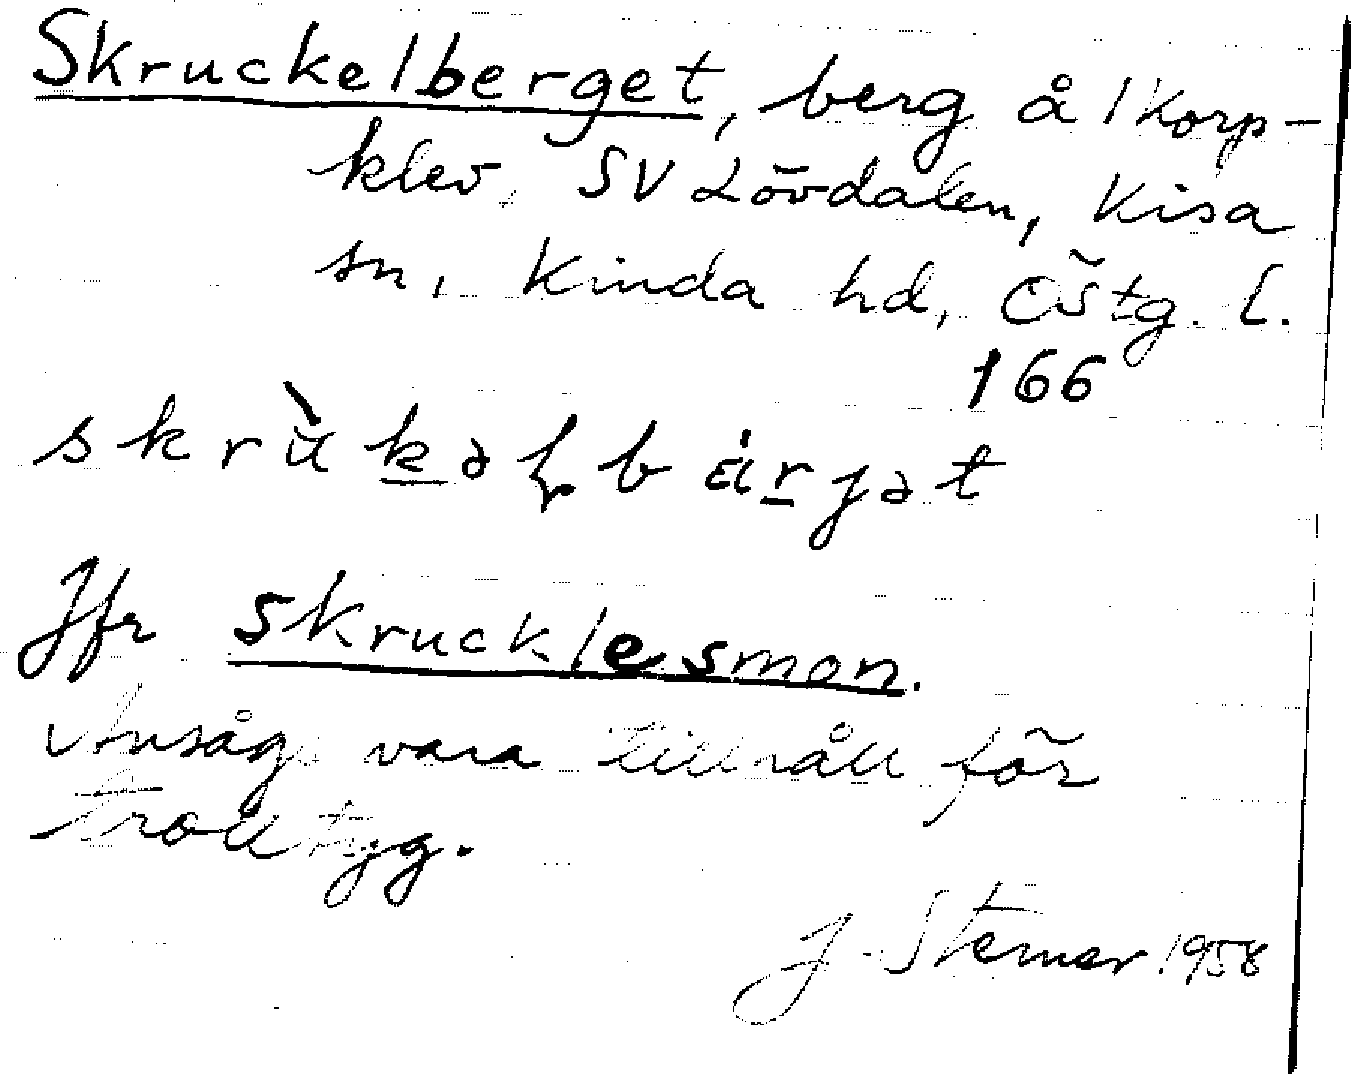 Skruckelberget, berg å 1 Korp-
klev, SV Lövdalen, Kisa
sn, Kinda hd, Östg. l.
166
skrùkəɭbärjət
Jfr Skrucklesmon.
Ansågs vara tillhåll för
trolltyg.
J. Sterner 1958